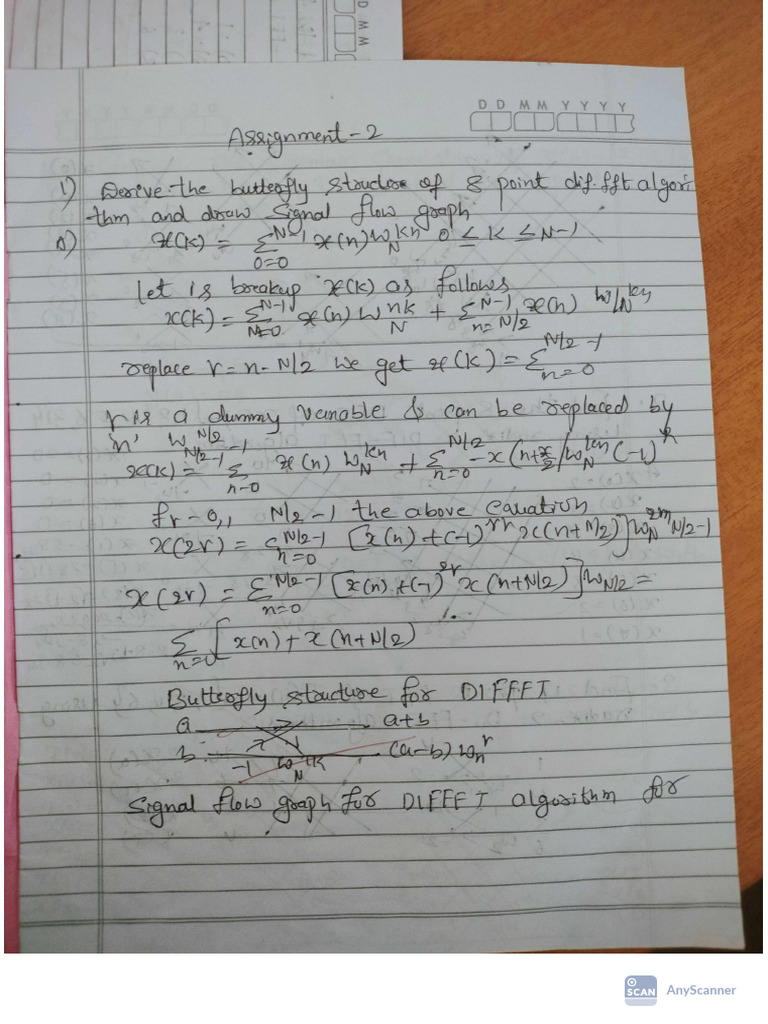 D D M M Y Y Y Y
Assignment-2
1) Derive the butterfly structure of 8 point dif.fft algori
thm and draw signal flow graph
A) x(k) = Σ^{N-1}_{0=0} x(n) W_N^{kn} 0 ≤ k ≤ N-1
let is breakup x(k) as follows
x(k) = Σ^{N-1}_{n=0} x(n) W_N^{nk} + Σ^{N-1}_{n=N/2} x(n) W/_N^{kn}
replace r = n - N/2 we get x(k) = Σ^{N/2-1}_{n=0}
r is a dummy variable & can be replaced by
'n' W^{N/2}
x(k) = Σ^{N/2-1}_{n-0} x(n) W_N^{kn} + Σ^{N/2}_{n=0} - x(n+x/2)/W_N^{kn} (-1)^k
fr-0,, N/2-1 the above equation
x(2r) = Σ^{N/2-1}_{n=0} [x(n) + (-1) x(n+N/2)] W_N N/2-1
x(2r) = Σ^{N/2-1}_{n=0} [x(n) + (-1)^{2r} x(n+N/2)] W_{N/2} =
Σ_{n=0} [x(n) + x(n+N/2)
Butterfly structure for DIFFFT
a a+b
b -1 W_N (a-b) W_n^r
Signal flow graph for DIFFFT algorithm for
SCAN AnyScanner